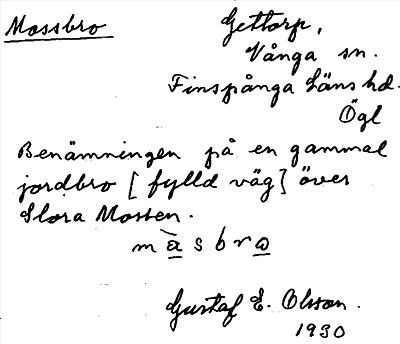 Mossbro
Gettorp,
Vånga sn.
Finspånga läns hd.
Ögl
Benämningen på en gammal
jordbro [fylld väg] över
Stora Mossen.
må̀sbro
Gustaf E. Olsson.
1930